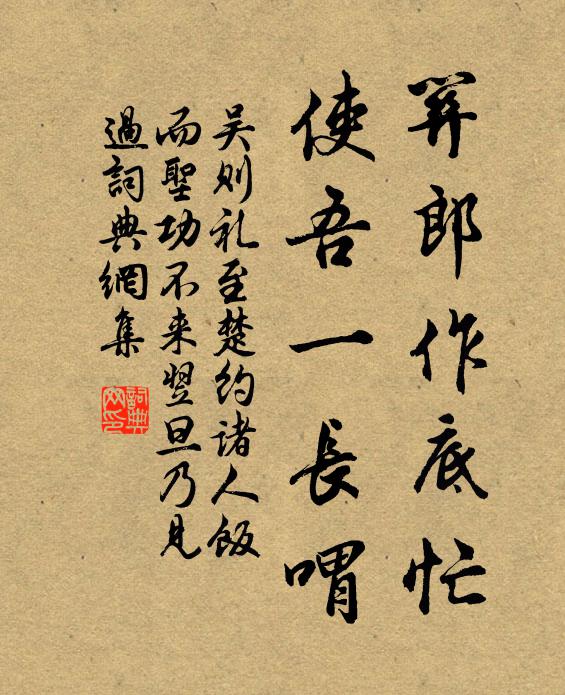 羿郎作底忙
使吾一長喟
吴则礼至楚约诸人飯
而聖功不来翌旦乃見
過詞典網集
詞典
网印